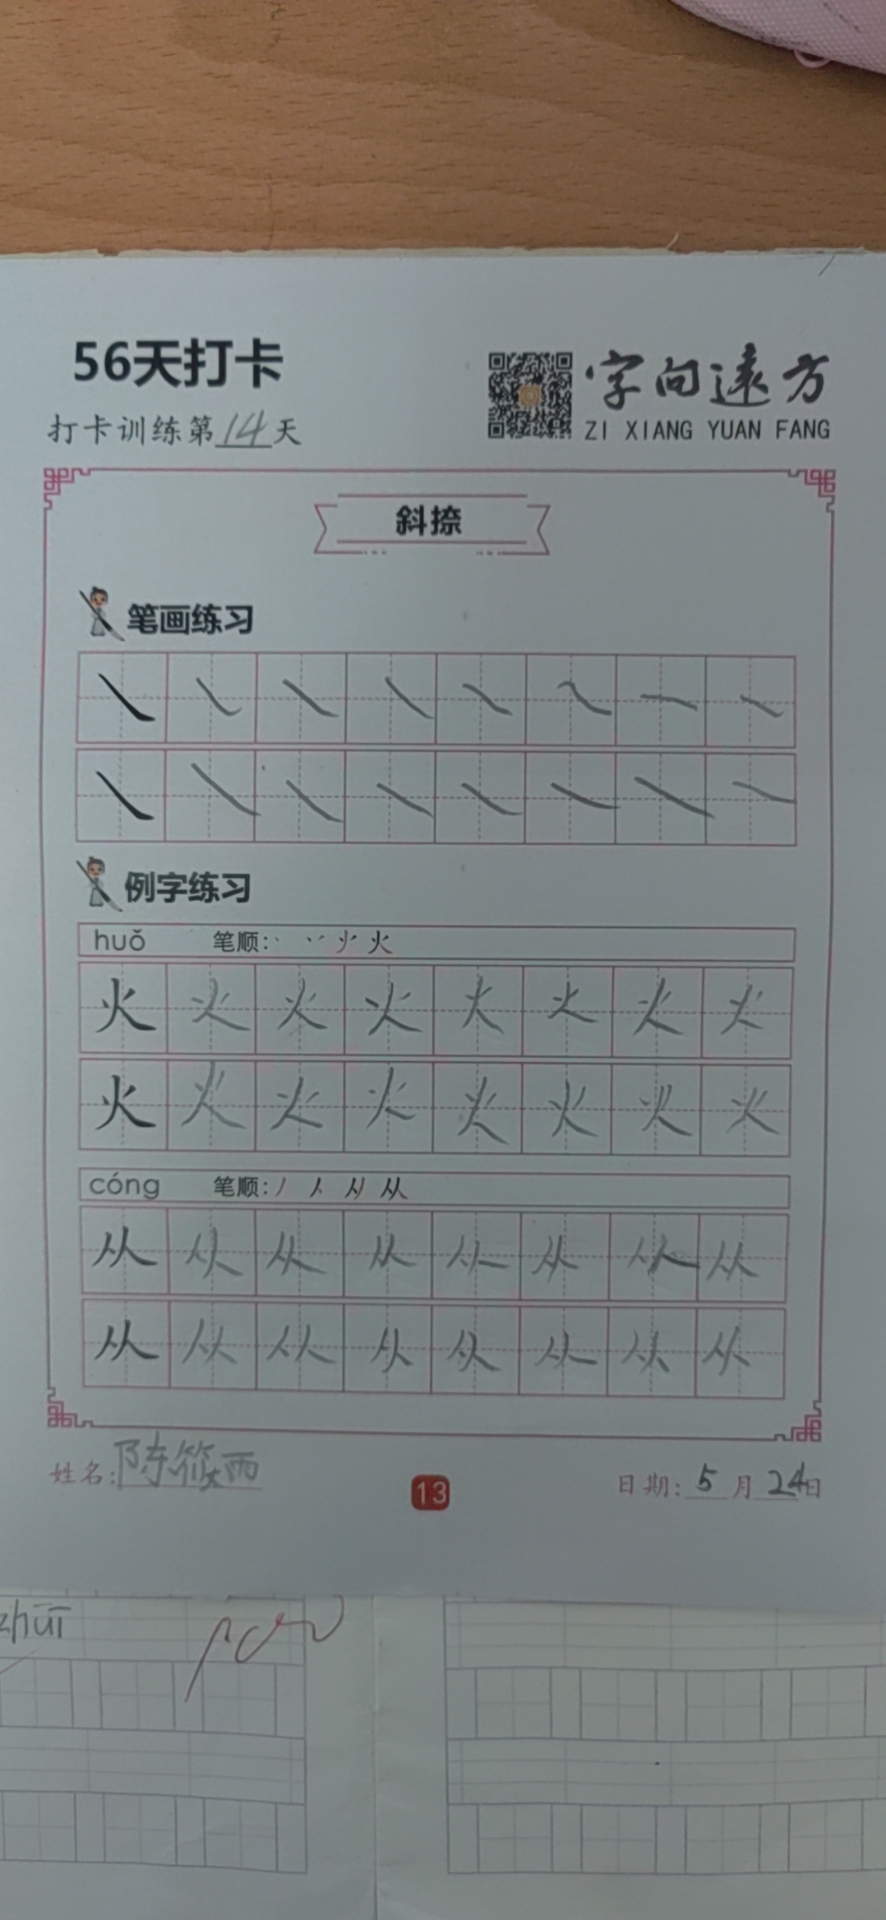 56天打卡
打卡训练第14天
字向遠方
ZI XIANG YUAN FANG
斜捺
笔画练习
例字练习
huǒ 笔顺: 火
火 火 火 火 火 火 火 火
火 火 火 火 火 火 火 火
cóng 笔顺: 丿 人 从
从 从 从 从 从 从 从 从
从 从 从 从 从 从 从 从
姓名:陈筱雨
13
日期: 5 月 24日
zhuī